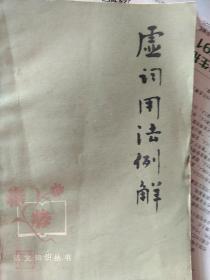 虚词用法例解
语文知识丛书